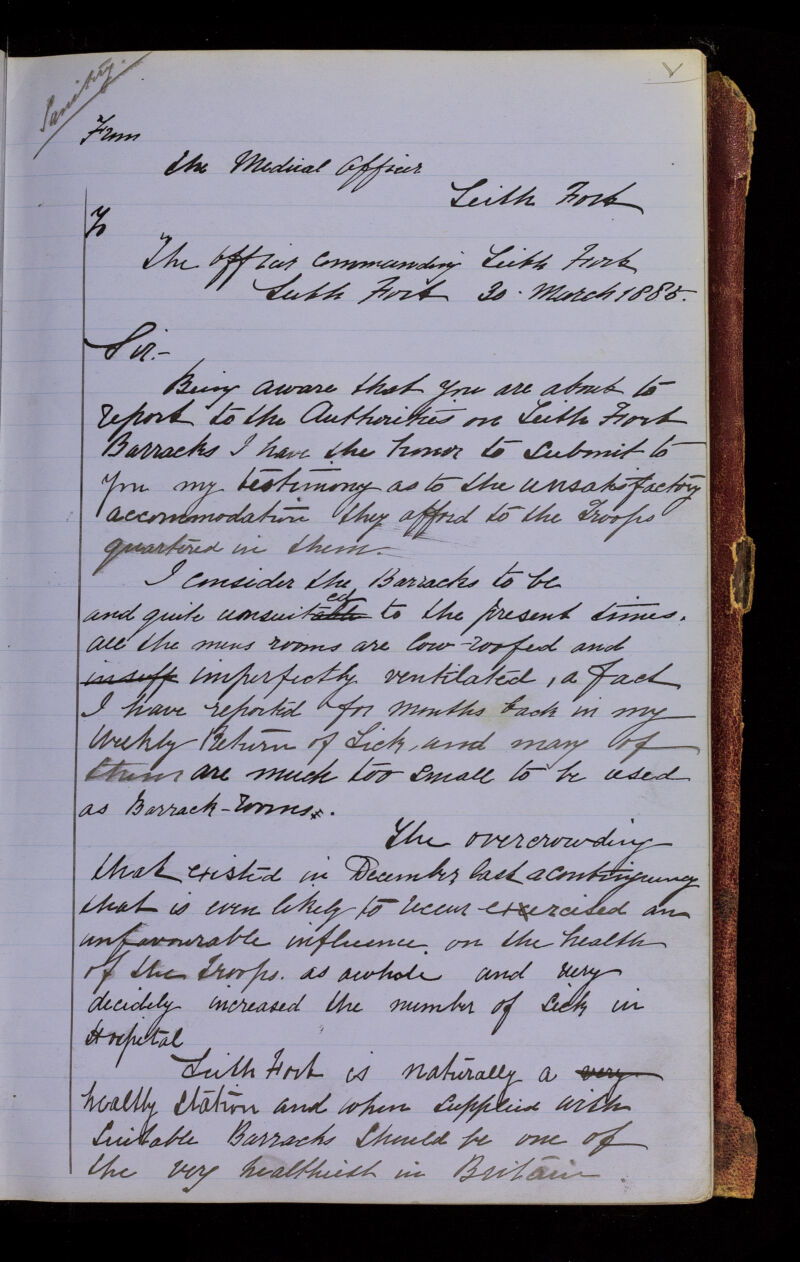 Sanitary.
From
The Medical Officer
Leith Fort
To
The Officer Commanding Leith Fort
Leith Fort 30 · March 1885.
Sir.-
Being aware that you are about to
report to the Authorities on Leith Fort
Barracks I have the honor to submit to
you my testimony as to the unsatisfactory
accommodation they afford to the Troops
quartered in them.
I consider the Barracks to be
and quite unsuitable ed to the present times.
all the mens rooms are low-roofed and
insuff imperfectly ventilated, a fact
I have reported for months back in my
Weekly Return of Sick, and many of
them are much too small to be used
as Barrack-rooms.
The overcrowding
that existed in December last a contingency
that is even likely to recur exercised an
unfavourable influence on the health
of the Troops. as awhole and very
decidely increased the number of Sick in
Hospital
Leith Fort is naturally a very
healthy station and when supplied with
Suitable Barracks should be one of
the very healthiest in Britain